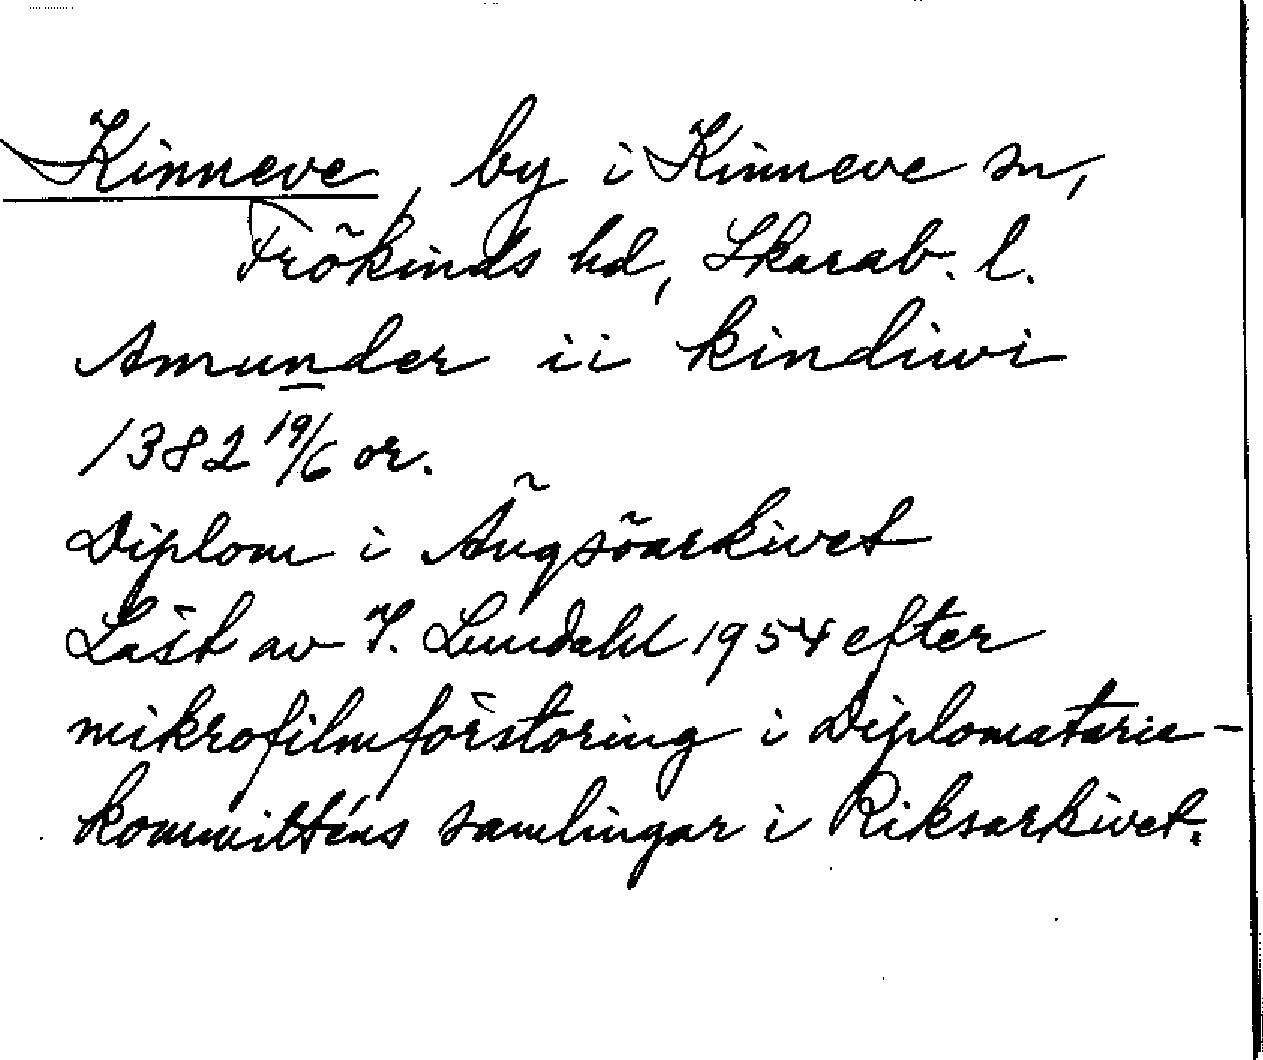 Kinneve, by i Kinneve sn,
Frökinds hd, Skarab. l.
Amunder ii kindiwi
1382 19/6 or.
Diplom i Ängsöarkivet
Läst av I. Lundahl 1954 efter
mikrofilmförstoring i Diplomatarie-
kommitténs samlingar i Riksarkivet.